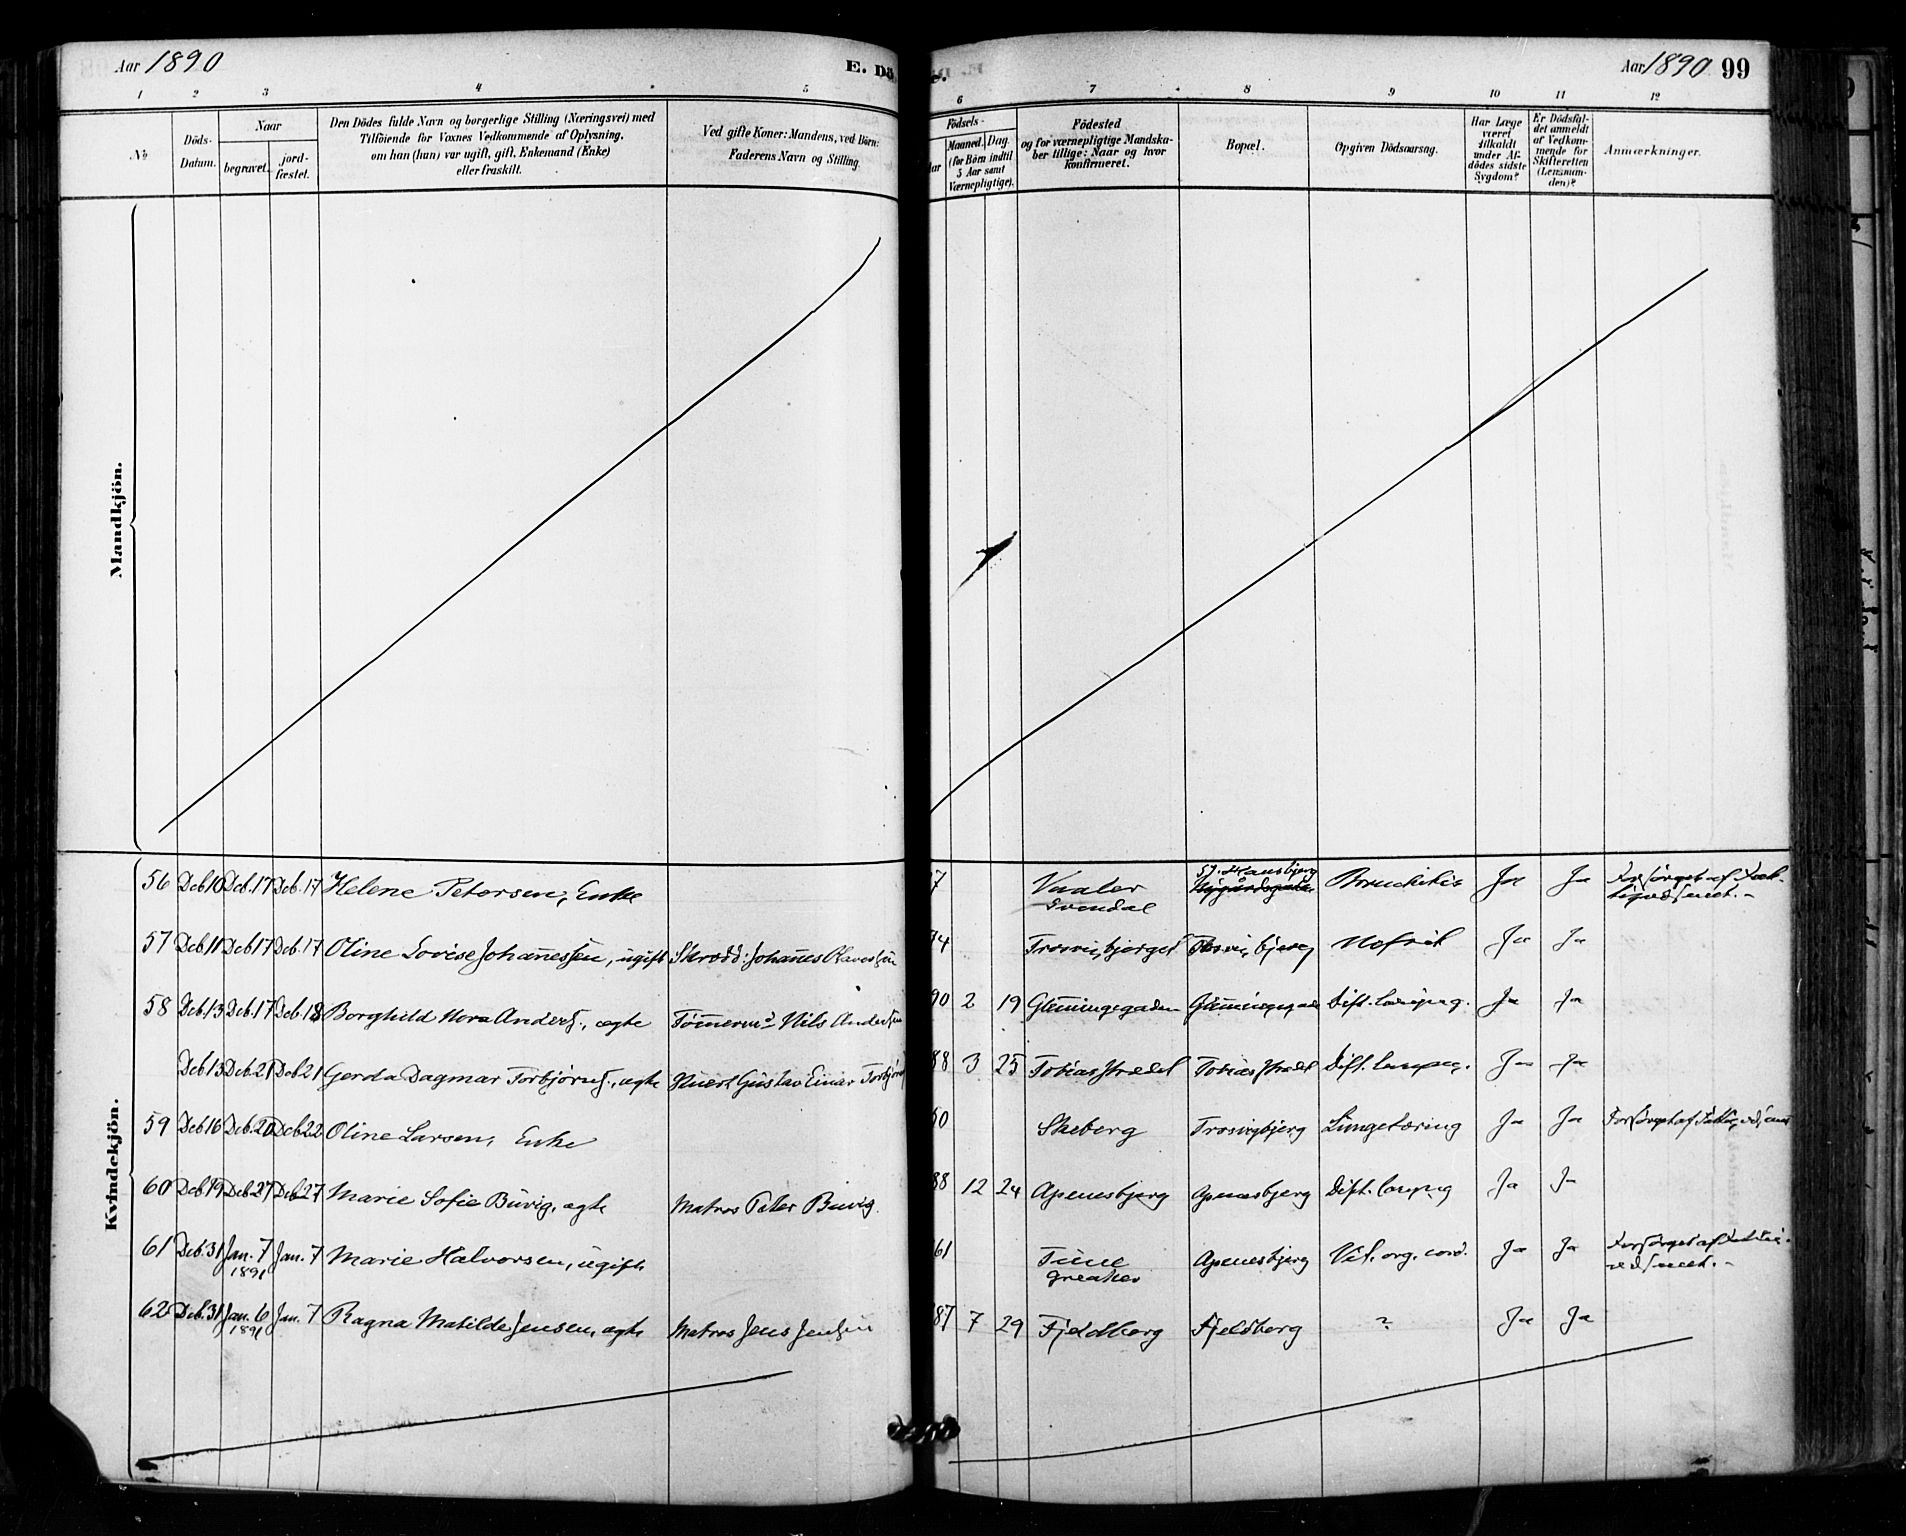 Aar 1890
E. Dö
Aar 1890 99
1 2 3 4 5 6 7 8 9 10 11 12
No
Döds-
Datum.
Naar
begravet.
jord-
fæstet.
Den Dödes fulde Navn og borgerlige Stilling (Næringsvei) med
Tilföiende for Voxnes Vedkommende af Oplysning,
om han (hun) var ugift, gift, Enkemand (Enke)
eller fraskilt.
Ved gifte Koner: Mandens, ved Börn:
Faderens Navn og Stilling.
Födsels-
Aar
Maaned. Dag.
(for Börn indtil
5 Aar samt
Værnepligtige).
Födested
og for værnepligtige Mandska-
ber tillige: Naar og hvor
konfirmeret.
Bopæl.
Opgiven Dödsaarsag.
Har Læge
været
tilkaldt
under Af-
dödes sidste
Sygdom?
Er Dödsfal-
det anmeldt
af Vedkom-
mende for
Skifteretten
(Lensman-
den)?
Anmærkninger.
Mandkjön.
Kvindekjön.
56 Deb 10 Deb. 17 Deb. 17 Helene Petersen, Enke 7 Vaaler Svendal Bronchitis Ja Ja Forsørget af
57 Deb 11 Deb 17 Deb. 17 Oline Lovise Johannessen, ugift Skrædd: Johannes Olavessen 74 Trosvigbjerget Trosvigbjerg Nefrit Ja Ja
58 Deb 13 Deb. 17 Deb. 18 Borghild Nora Anders., ægte Tömerm: Nils Andersen 90 2 19 Glemmingegaden Glemmingegad Dift. laryng. Ja Ja
Deb 13 Deb 21 Deb 21 Gerda Dagmar Torbjørns., ægte Gustav Einar Torbjørns 88 3 25 Tobiasstrædet Tobiasstrædet Dift. laryng. Ja Ja
59 Deb 16 Deb. 20 Deb 22 Oline Larsen, Enke 0 Skeberg Trosvigbjerg Lungetæring Ja Ja Forsørget af Fattigvæsenet
60 Deb 19 Deb 27 Deb 27 Marie Sofie Buvig, ægte Matros Peter Buvig. 88 12 24 Apenesbjerg Apenesbjerg Dift. laryng Ja Ja
61 Deb. 31 Jan. 7 1891 Jan. 7 Marie Halvorsen, ugift 61 Tune Greaker Apenesbjerg Vit. org. cord. Ja Ja Forsørget af Fattig-
væsenet.-
62 Deb. 31 Jan. 6 1891 Jan. 7 Ragna Matilde Jensen, ægte Matros Jens Jensen 87 7 29 Fjeldberg Fjeldberg ? Ja Ja